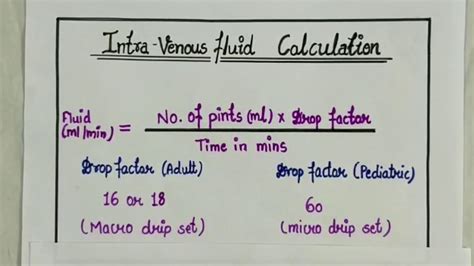 Intra-Venous fluid Calculation
Fluid (ml/min) = No. of pints (ml) x Drop factor
Time in mins
Drop factor (Adult)
Drop factor (Pediatric)
16 or 18
60
(Macro drip set)
(micro drip set)